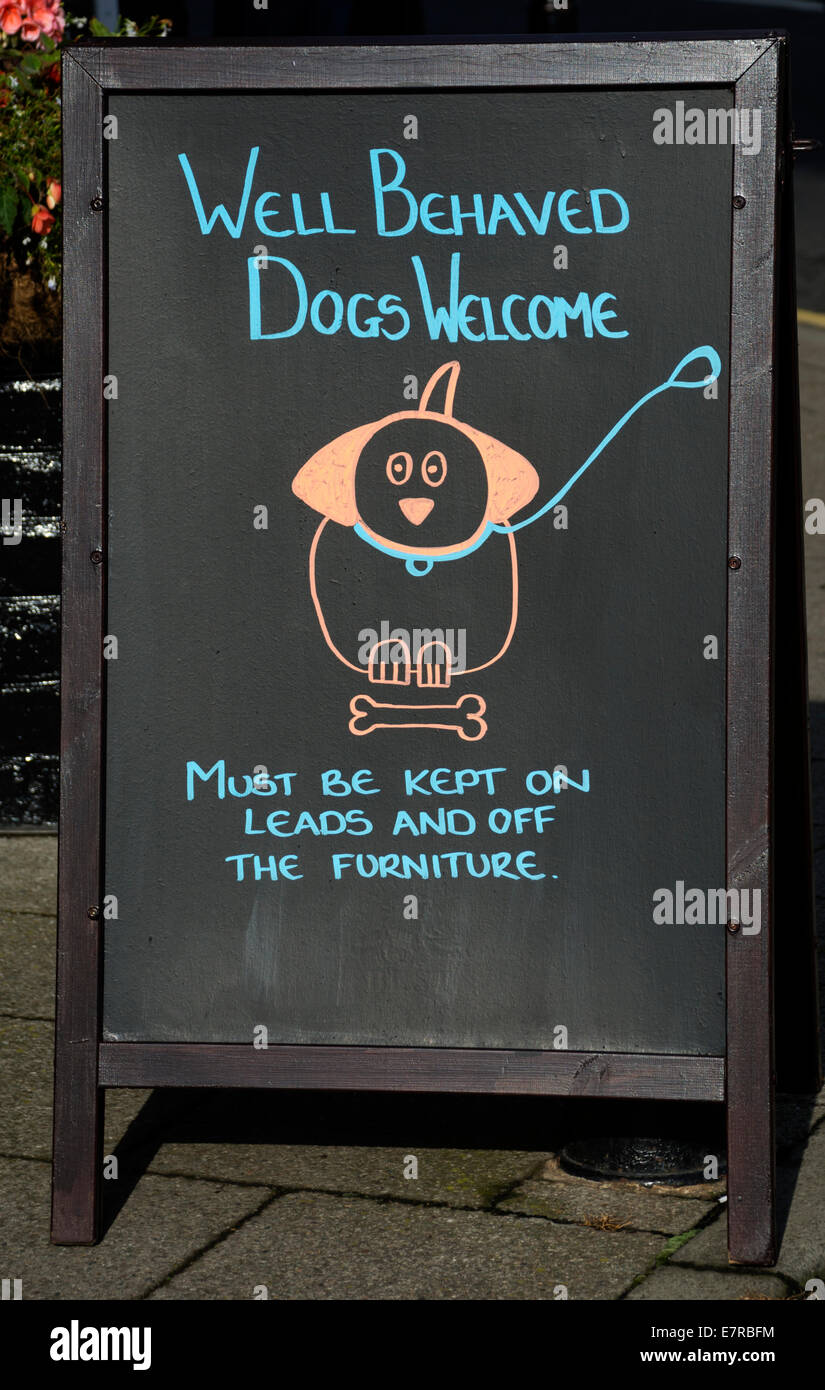 WELL BEHAVED
DOGS WELCOME
MUST BE KEPT ON
LEADS AND OFF
THE FURNITURE.
alamy
alamy
Image ID: E7RBFM
www.alamy.com